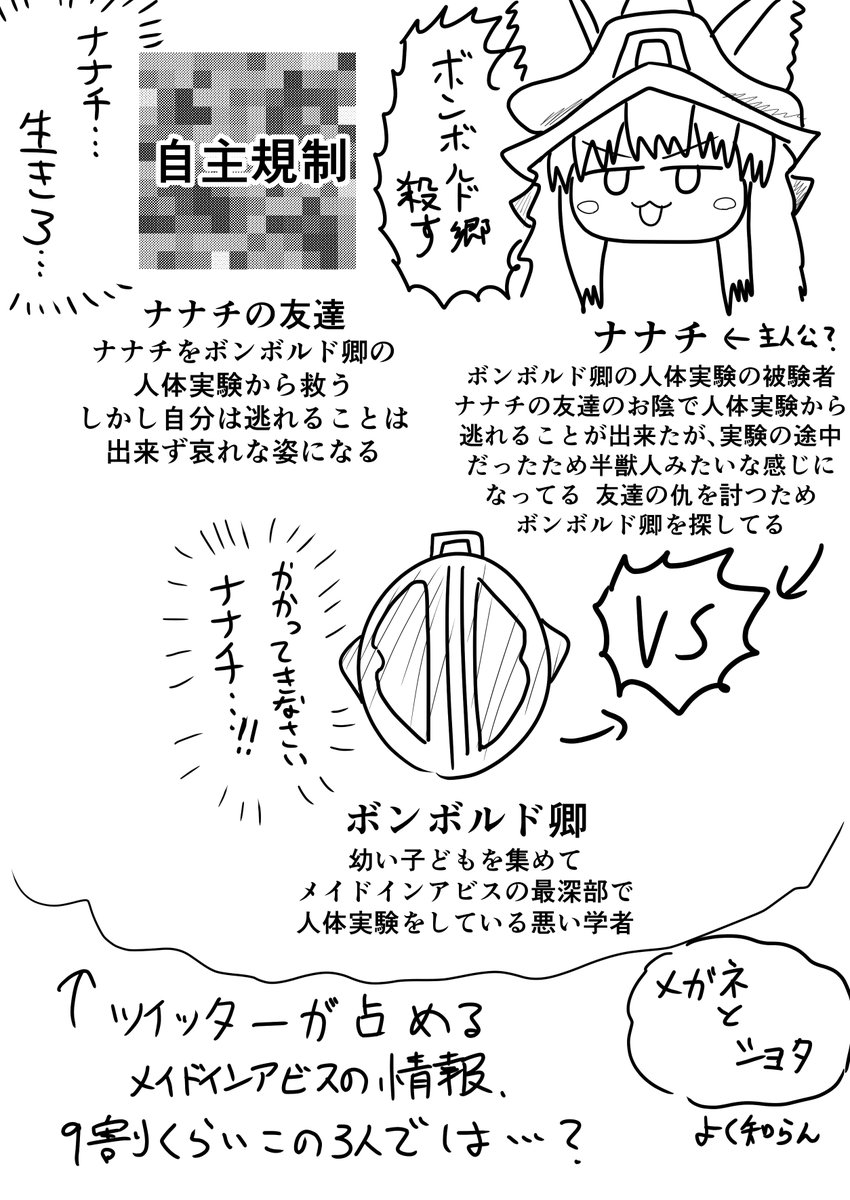 ボンボルド郷
殺す
自主規制
ナナチ…
生きろ…
ナナチ←主人公?
ボンボルド卿の人体実験の被験者
ナナチの友達のお陰で人体実験から
逃れることが出来たが、実験の途中
だったため半獣人みたいな感じに
なってる 友達の仇を討つため
ボンボルド卿を探してる
ナナチの友達
ナナチをボンボルド卿の
人体実験から救う
しかし自分は逃れることは
出来ず哀れな姿になる
VS
かかってきなさい
ナナチ…!!
ボンボルド卿
幼い子どもを集めて
メイドインアビスの最深部で
人体実験をしている悪い学者
↑ツイッターが占める
メイドインアビスの情報、
9割くらいこの3人では…?
メガネ
と
ショタ
よく知らん